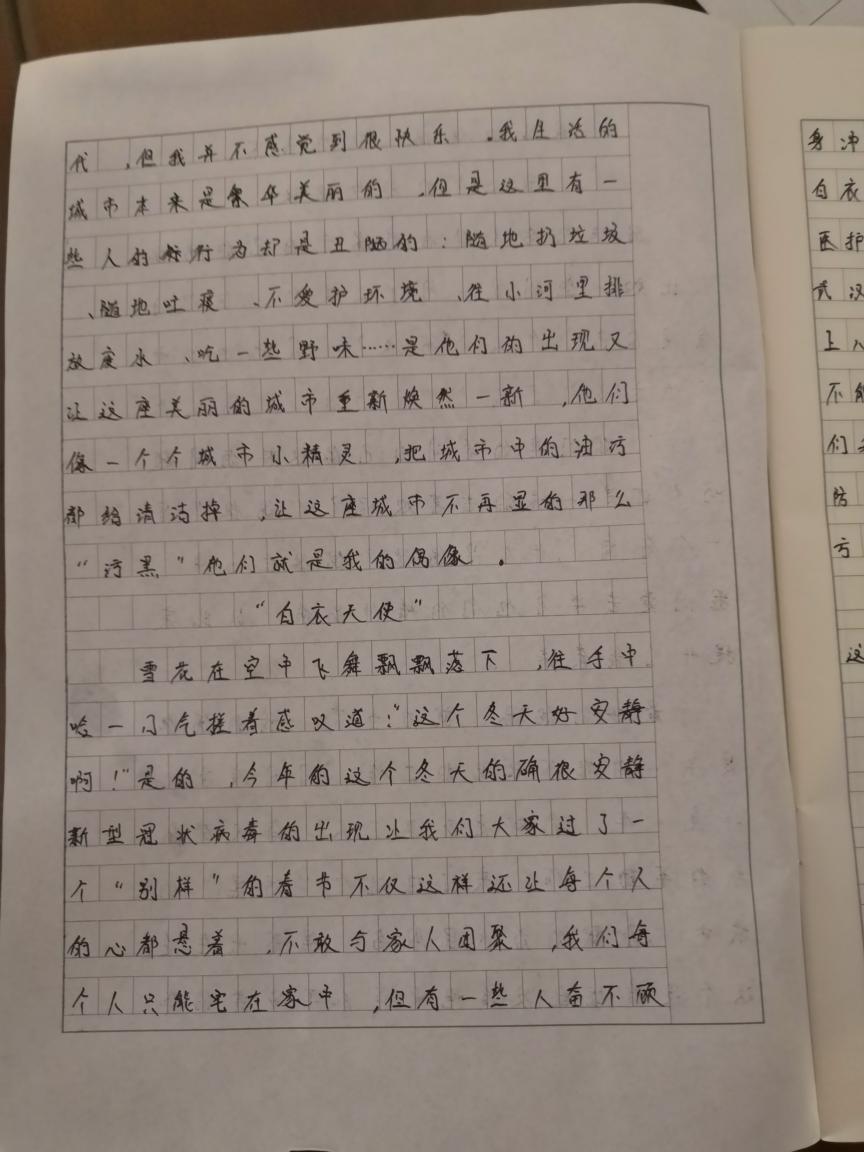 代，但我并不感觉到很快乐。我生活的
城市本来是繁华美丽的，但是这里有一
些人的行为却是丑陋的：随地扔垃圾
、随地吐痰、不爱护环境、往小河里排
放废水、吃一些野味……是他们的出现又
让这座美丽的城市重新焕然一新，他们
像一个个城市小精灵，把城市中的油污
都给清洁掉，让这座城市不再显的那么
“污黑”他们就是我的偶像。
“白衣天使”
雪花在空中飞舞飘飘落下，往手中
哈一口气搓着感叹道：“这个冬天好安静
啊！”是的，今年的这个冬天的确很安静
新型冠状病毒的出现让我们大家过了一
个“别样”的春节不仅这样还让每个人
的心都悬着，不敢与家人团聚，我们每
个人只能宅在家中，但有一些人奋不顾
身冲
白衣
医护
武汉
上
不能
们
防
亏
这